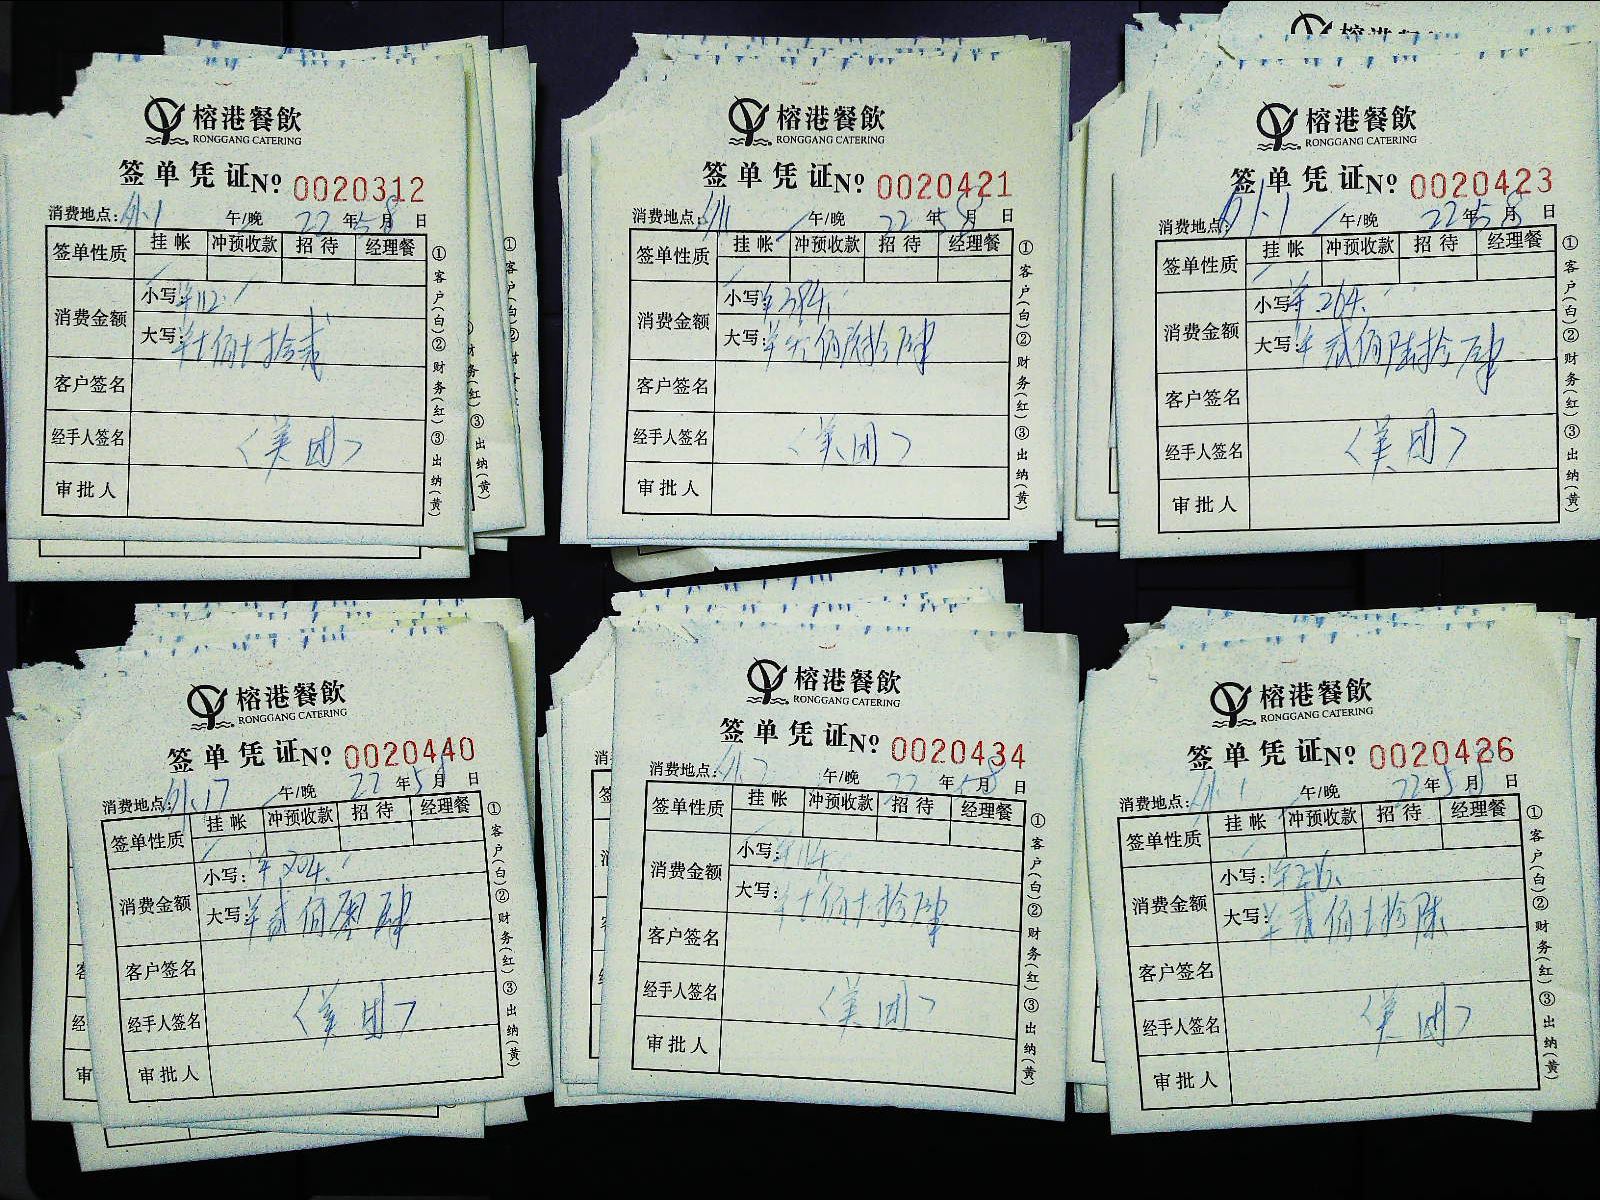 榕港餐飲
RONGGANG CATERING
签单凭证No 0020312
消费地点: 外.1 午/晚 22年5月8日
签单性质 挂帐 冲预收款 招待 经理餐
消费金额 小写: ¥112.
大写:
客户签名
经手人签名 〈美团〉
审批人
①客户(白)②财务(红)③出纳(黄)
榕港餐飲
RONGGANG CATERING
签单凭证No 0020421
消费地点: 外1 午/晚 22年5月8日
签单性质 挂帐 冲预收款 招待 经理餐
消费金额 小写: ¥384.
大写:
客户签名
经手人签名 〈美团〉
审批人
①客户(白)②财务(红)③出纳(黄)
榕港餐飲
榕港餐飲
RONGGANG CATERING
签单凭证No 0020423
消费地点: 外.1 午/晚 22年5月8日
签单性质 挂帐 冲预收款 招待 经理餐
消费金额 小写: ¥264.
大写: ¥贰佰陆拾肆
客户签名
经手人签名 〈美团〉
审批人
①客户(白)②财务(红)③出纳(黄)
榕港餐飲
RONGGANG CATERING
签单凭证No 0020440
消费地点: 外.17 午/晚 22年5月8日
签单性质 挂帐 冲预收款 招待 经理餐
消费金额 小写: ¥204.
大写: ¥贰佰零肆
客户签名
经手人签名 〈美团〉
审批人
①客户(白)②财务(红)③出纳(黄)
榕港餐飲
RONGGANG CATERING
签单凭证No 0020434
消费地点: 外.2 午/晚 22年5月8日
签单性质 挂帐 冲预收款 招待 经理餐
消费金额 小写: ¥114.
大写:
客户签名
经手人签名 〈美团〉
审批人
①客户(白)②财务(红)③出纳(黄)
榕港餐飲
RONGGANG CATERING
签单凭证No 0020426
消费地点: 外.1 午/晚 22年5月8日
签单性质 挂帐 冲预收款 招待 经理餐
消费金额 小写: ¥216.
大写:
客户签名
经手人签名 〈美团〉
审批人
①客户(白)②财务(红)③出纳(黄)